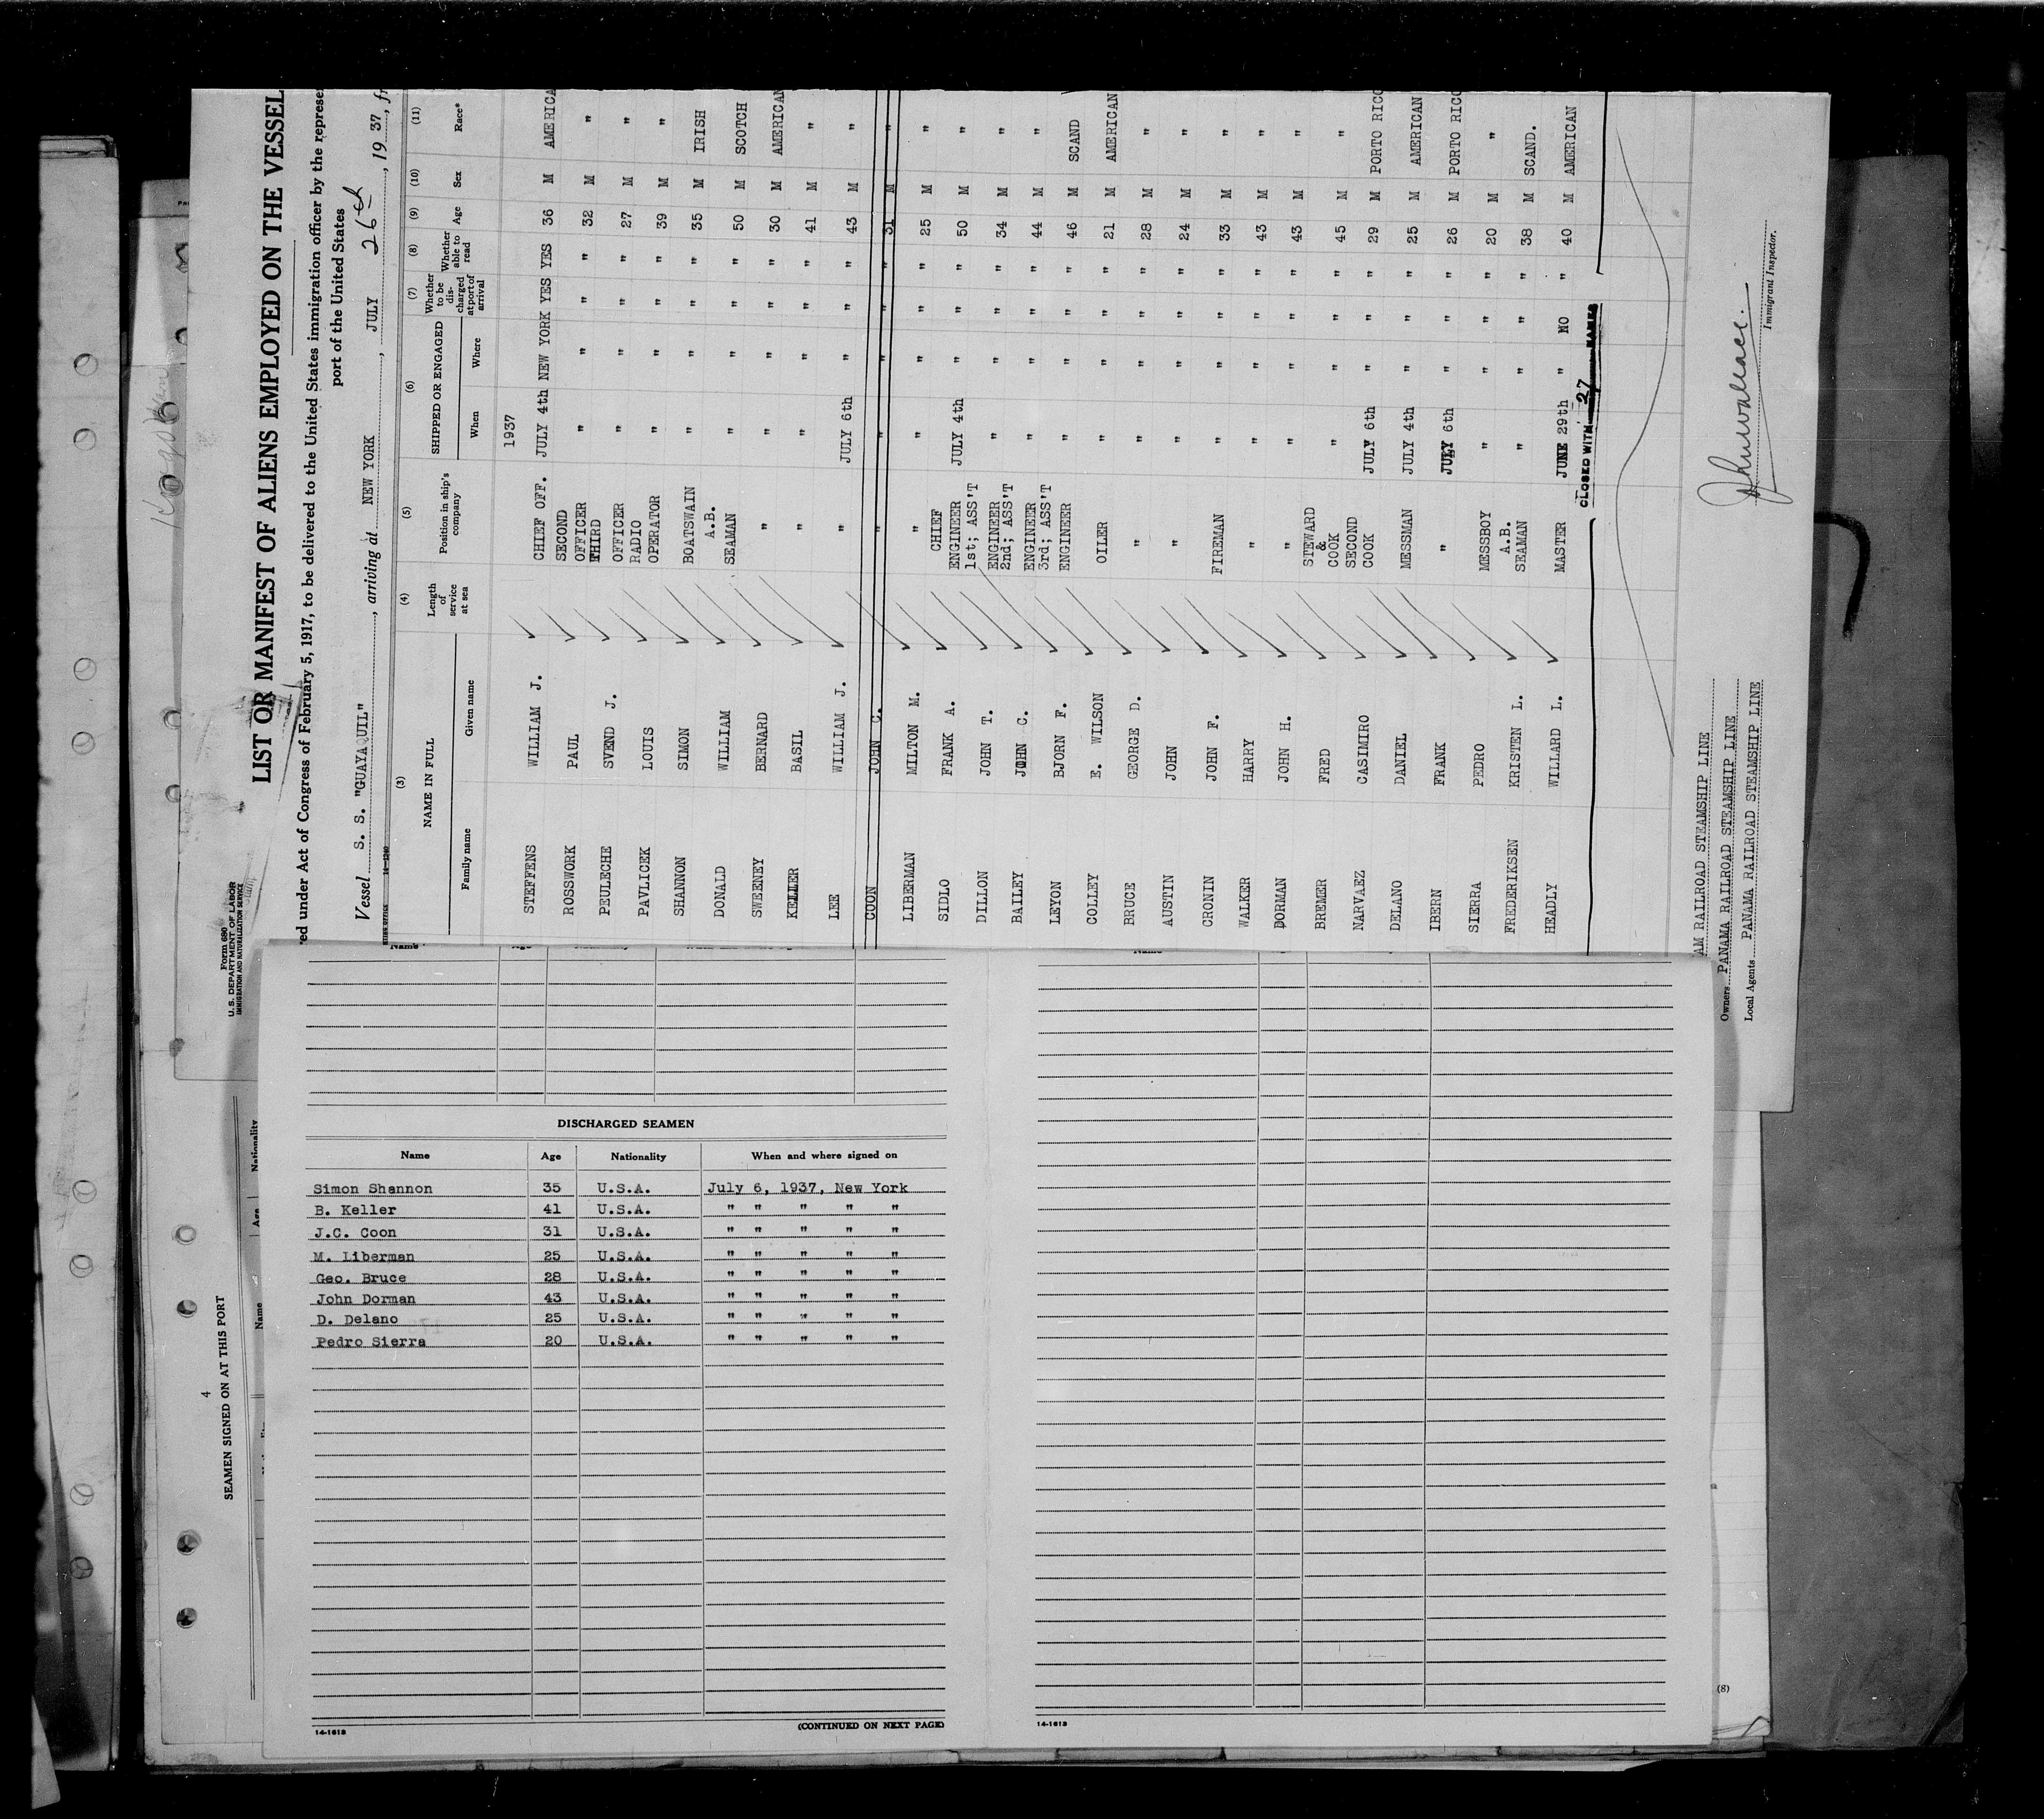 Form 680
U.S. DEPARTMENT OF LABOR
IMMIGRATION AND NATURALIZATION SERVICE
LIST OR MANIFEST OF ALIENS EMPLOYED ON THE VESSEL
red under Act of Congress of February 5, 1917, to be delivered to the United States immigration officer by the represe
port of the United States
Vessel S. S. "GUAYAQUIL", arriving at NEW YORK, JULY 26th, 19 37, fr
(3) (4) (5) (6) (7) (8) (9) (10) (11)
NAME IN FULL Length of service at sea Position in ship's company SHIPPED OR ENGAGED Whether to be discharged at port of arrival Whether able to read Age Sex Race*
Family name Given name When Where
1937
STEFFENS WILLIAM J. CHIEF OFF. JULY 4th NEW YORK YES YES 36 M AMERICA
ROSSWORK PAUL SECOND OFFICER " " " " 32 M "
PEULECHE SVEND J. THIRD OFFICER " " " " 27 M "
PAVLICEK LOUIS RADIO OPERATOR " " " " 39 M "
SHANNON SIMON BOATSWAIN " " " " 35 M IRISH
DONALD WILLIAM A.B. SEAMAN " " " " 50 M SCOTCH
SWEENEY BERNARD " " " " " 30 M AMERICAN
KELLER BASIL " " " " " 41 M "
LEE WILLIAM J. " JULY 6th " " " 43 M "
COON JOHN C. " " " " " 31 M "
LIBERMAN MILTON M. " " " " " 25 M "
SIDLO FRANK A. CHIEF ENGINEER JULY 4th " " " 50 M "
DILLON JOHN T. 1st; ASS'T ENGINEER " " " " 34 M "
BAILEY JOHN C. 2nd; ASS'T ENGINEER " " " " 44 M "
LEYON BJORN F. 3rd; ASS'T ENGINEER " " " " 46 M SCAND
COLLEY E. WILSON OILER " " " " 21 M AMERICAN
BRUCE GEORGE D. " " " " " 28 M "
AUSTIN JOHN " " " " " 24 M "
CRONIN JOHN F. FIREMAN " " " " 33 M "
WALKER HARRY " " " " " 43 M "
DORMAN JOHN H. " " " " " 43 M "
BREMER FRED STEWARD & COOK " " " " 45 M "
NARVAEZ CASIMIRO SECOND COOK JULY 6th " " " 29 M PORTO RICO
DELANO DANIEL MESSMAN JULY 4th " " " 25 M AMERICAN
IBERN FRANK " JULY 6th " " " 26 M PORTO RICO
SIERRA PEDRO MESSBOY " " " " 20 M "
FREDERIKSEN KRISTEN L. A.B. SEAMAN " " " " 38 M SCAND.
HEADLY WILLARD L. MASTER JUNE 29th " NO " 40 M AMERICAN
CLOSED WITH 27 NAMES
Immigrant Inspector.
AM RAILROAD STEAMSHIP LINE
Owners PANAMA RAILROAD STEAMSHIP LINE
Local Agents PANAMA RAILROAD STEAMSHIP LINE
4
SEAMEN SIGNED ON AT THIS PORT
Name Age Nationality
DISCHARGED SEAMEN
Name Age Nationality When and where signed on
Simon Shannon 35 U.S.A. July 6, 1937, New York
B. Keller 41 U.S.A. " " " " "
J.C. Coon 31 U.S.A. " " " " "
M. Liberman 25 U.S.A. " " " " "
Geo. Bruce 28 U.S.A. " " " " "
John Dorman 43 U.S.A. " " " " "
D. Delano 25 U.S.A. " " " " "
Pedro Sierra 20 U.S.A. " " " " "
14-1613 (CONTINUED ON NEXT PAGE)
14-1613
(8)